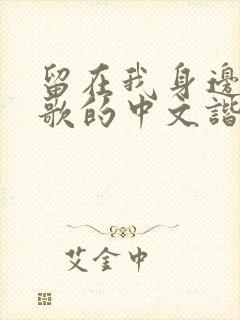 留在我身邊
歌的中文諧
艾金中